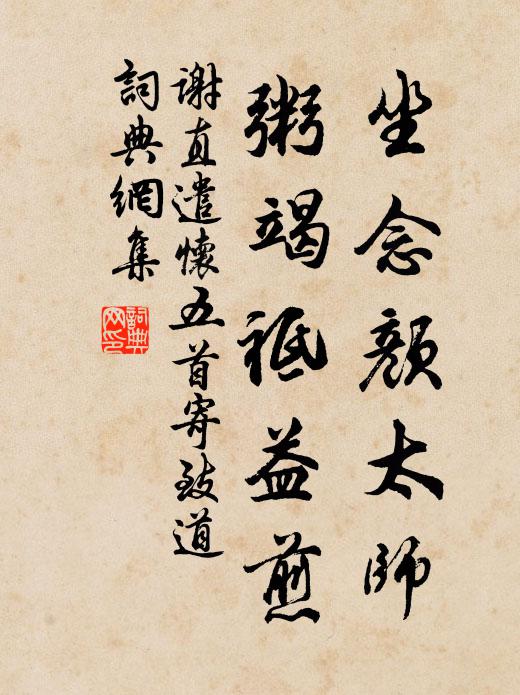 坐念顏太師
粥竭祗益煎
謝直遣懷五首寄致道
詞典網集
詞典
网印